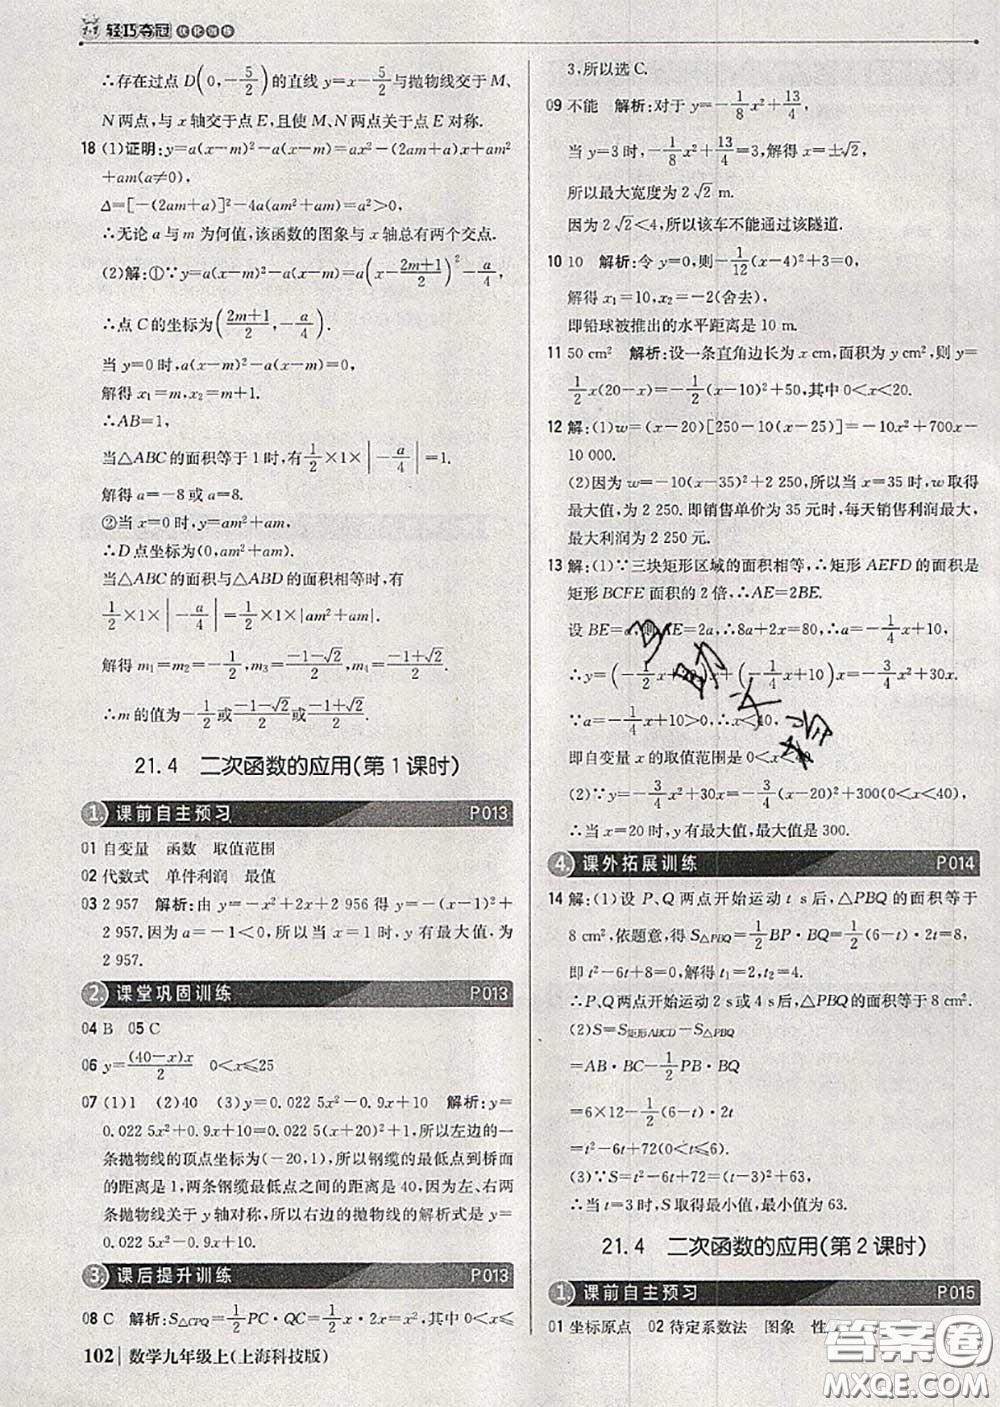 1+1 轻巧夺冠 优化训练
∴存在过点 D(0,-5/2)的直线 y=x-5/2与抛物线交于 M、
N 两点,与 x 轴交于点 E,且使 M、N 两点关于点 E 对称.
18 (1)证明:y=a(x-m)²-a(x-m)=ax²-(2am+a)x+am²
+am(a≠0),
Δ=[-(2am+a)]²-4a(am²+am)=a²>0,
∴无论 a 与 m 为何值,该函数的图象与 x 轴总有两个交点.
(2)解:①∵y=a(x-m)²-a(x-m)=a(x-(2m+1)/2)²-a/4,
∴点 C 的坐标为((2m+1)/2,-a/4).
当 y=0 时,a(x-m)²-a(x-m)=0.
解得 x₁=m,x₂=m+1.
∴AB=1,
当△ABC 的面积等于 1 时,有1/2×1×|-a/4|=1.
解得 a=-8 或 a=8.
②当 x=0 时,y=am²+am,
∴D 点坐标为(0,am²+am).
当△ABC 的面积与△ABD 的面积相等时,有
1/2×1×|-a/4|=1/2×1×|am²+am|.
解得 m₁=m₂=-1/2,m₃=(-1-√2)/2,m₄=(-1+√2)/2.
∴m 的值为-1/2或(-1-√2)/2或(-1+√2)/2.
21.4 二次函数的应用(第 1 课时)
1. 课前自主预习 P013
01 自变量 函数 取值范围
02 代数式 单件利润 最值
03 2 957 解析:由 y=-x²+2x+2 956 得 y=-(x-1)²+
2 957. 因为 a=-1<0,所以当 x=1 时,y 有最大值为
2 957.
2. 课堂巩固训练 P013
04 B 05 C
06 y=(40-x)x/2 0<x≤25
07 (1)1 (2)40 (3)y=0.022 5x²-0.9x+10 解析:y=
0.022 5x²+0.9x+10=0.022 5(x+20)²+1,所以左边的一
条抛物线的顶点坐标为(-20,1),所以钢缆的最低点到桥面
的距离是 1,两条钢缆最低点之间的距离是 40,因为左、右两
条抛物线关于 y 轴对称,所以右边的抛物线的解析式是 y=
0.022 5x²-0.9x+10.
3. 课后提升训练 P013
08 C 解析:S△CPQ=1/2PC·QC=1/2x·2x=x²,其中 0<x≤
102 数学九年级上(上海科技版)
3,所以选 C.
09 不能 解析:对于 y=-1/8x²+13/4,
当 y=3 时,-1/8x²+13/4=3,解得 x=±√2,
所以最大宽度为 2√2 m.
因为 2√2<4,所以该车不能通过该隧道.
10 10 解析:令 y=0,则-1/12(x-4)²+3=0,
解得 x₁=10,x₂=-2(舍去),
即铅球被推出的水平距离是 10 m.
11 50 cm² 解析:设一条直角边长为 x cm,面积为 y cm²,则 y=
1/2x(20-x)=-1/2(x-10)²+50,其中 0<x<20.
12 解:(1)w=(x-20)[250-10(x-25)]=-10x²+700x-
10 000.
(2)因为 w=-10(x-35)²+2 250,所以当 x=35 时,w 取得
最大值,为 2 250. 即销售单价为 35 元时,每天销售利润最大,
最大利润为 2 250 元.
13 解:(1)∵三块矩形区域的面积相等,∴矩形 AEFD 的面积是
矩形 BCFE 面积的 2 倍,∴AE=2BE.
设 BE=a,则 AE=2a,∴8a+2x=80,∴a=-1/4x+10,
∴y=(-1/2x+20)x+(-1/4x+10)x=-3/4x²+30x.
∵a=-1/4x+10>0,∴x<40,
即自变量 x 的取值范围是 0<x<40.
(2)∵y=-3/4x²+30x=-3/4(x-20)²+300(0<x<40),
∴当 x=20 时,y 有最大值,最大值是 300.
4. 课外拓展训练 P014
14 解:(1)设 P、Q 两点开始运动 t s 后,△PBQ 的面积等于
8 cm²,依题意,得 S△PBQ=1/2BP·BQ=1/2(6-t)·2t=8,
即 t²-6t+8=0,解得 t₁=2,t₂=4.
∴P、Q 两点开始运动 2 s 或 4 s 后,△PBQ 的面积等于 8 cm².
(2)S=S矩形ABCD-S△PBQ
=AB·BC-1/2PB·BQ
=6×12-1/2(6-t)·2t
=t²-6t+72(0<t≤6);
(3)∵S=t²-6t+72=(t-3)²+63,
∴当 t=3 时,S 取得最小值,最小值为 63.
21.4 二次函数的应用(第 2 课时)
1. 课前自主预习 P015
01 坐标原点 02 待定系数法 图象 性
答案圈
MXQE.COM